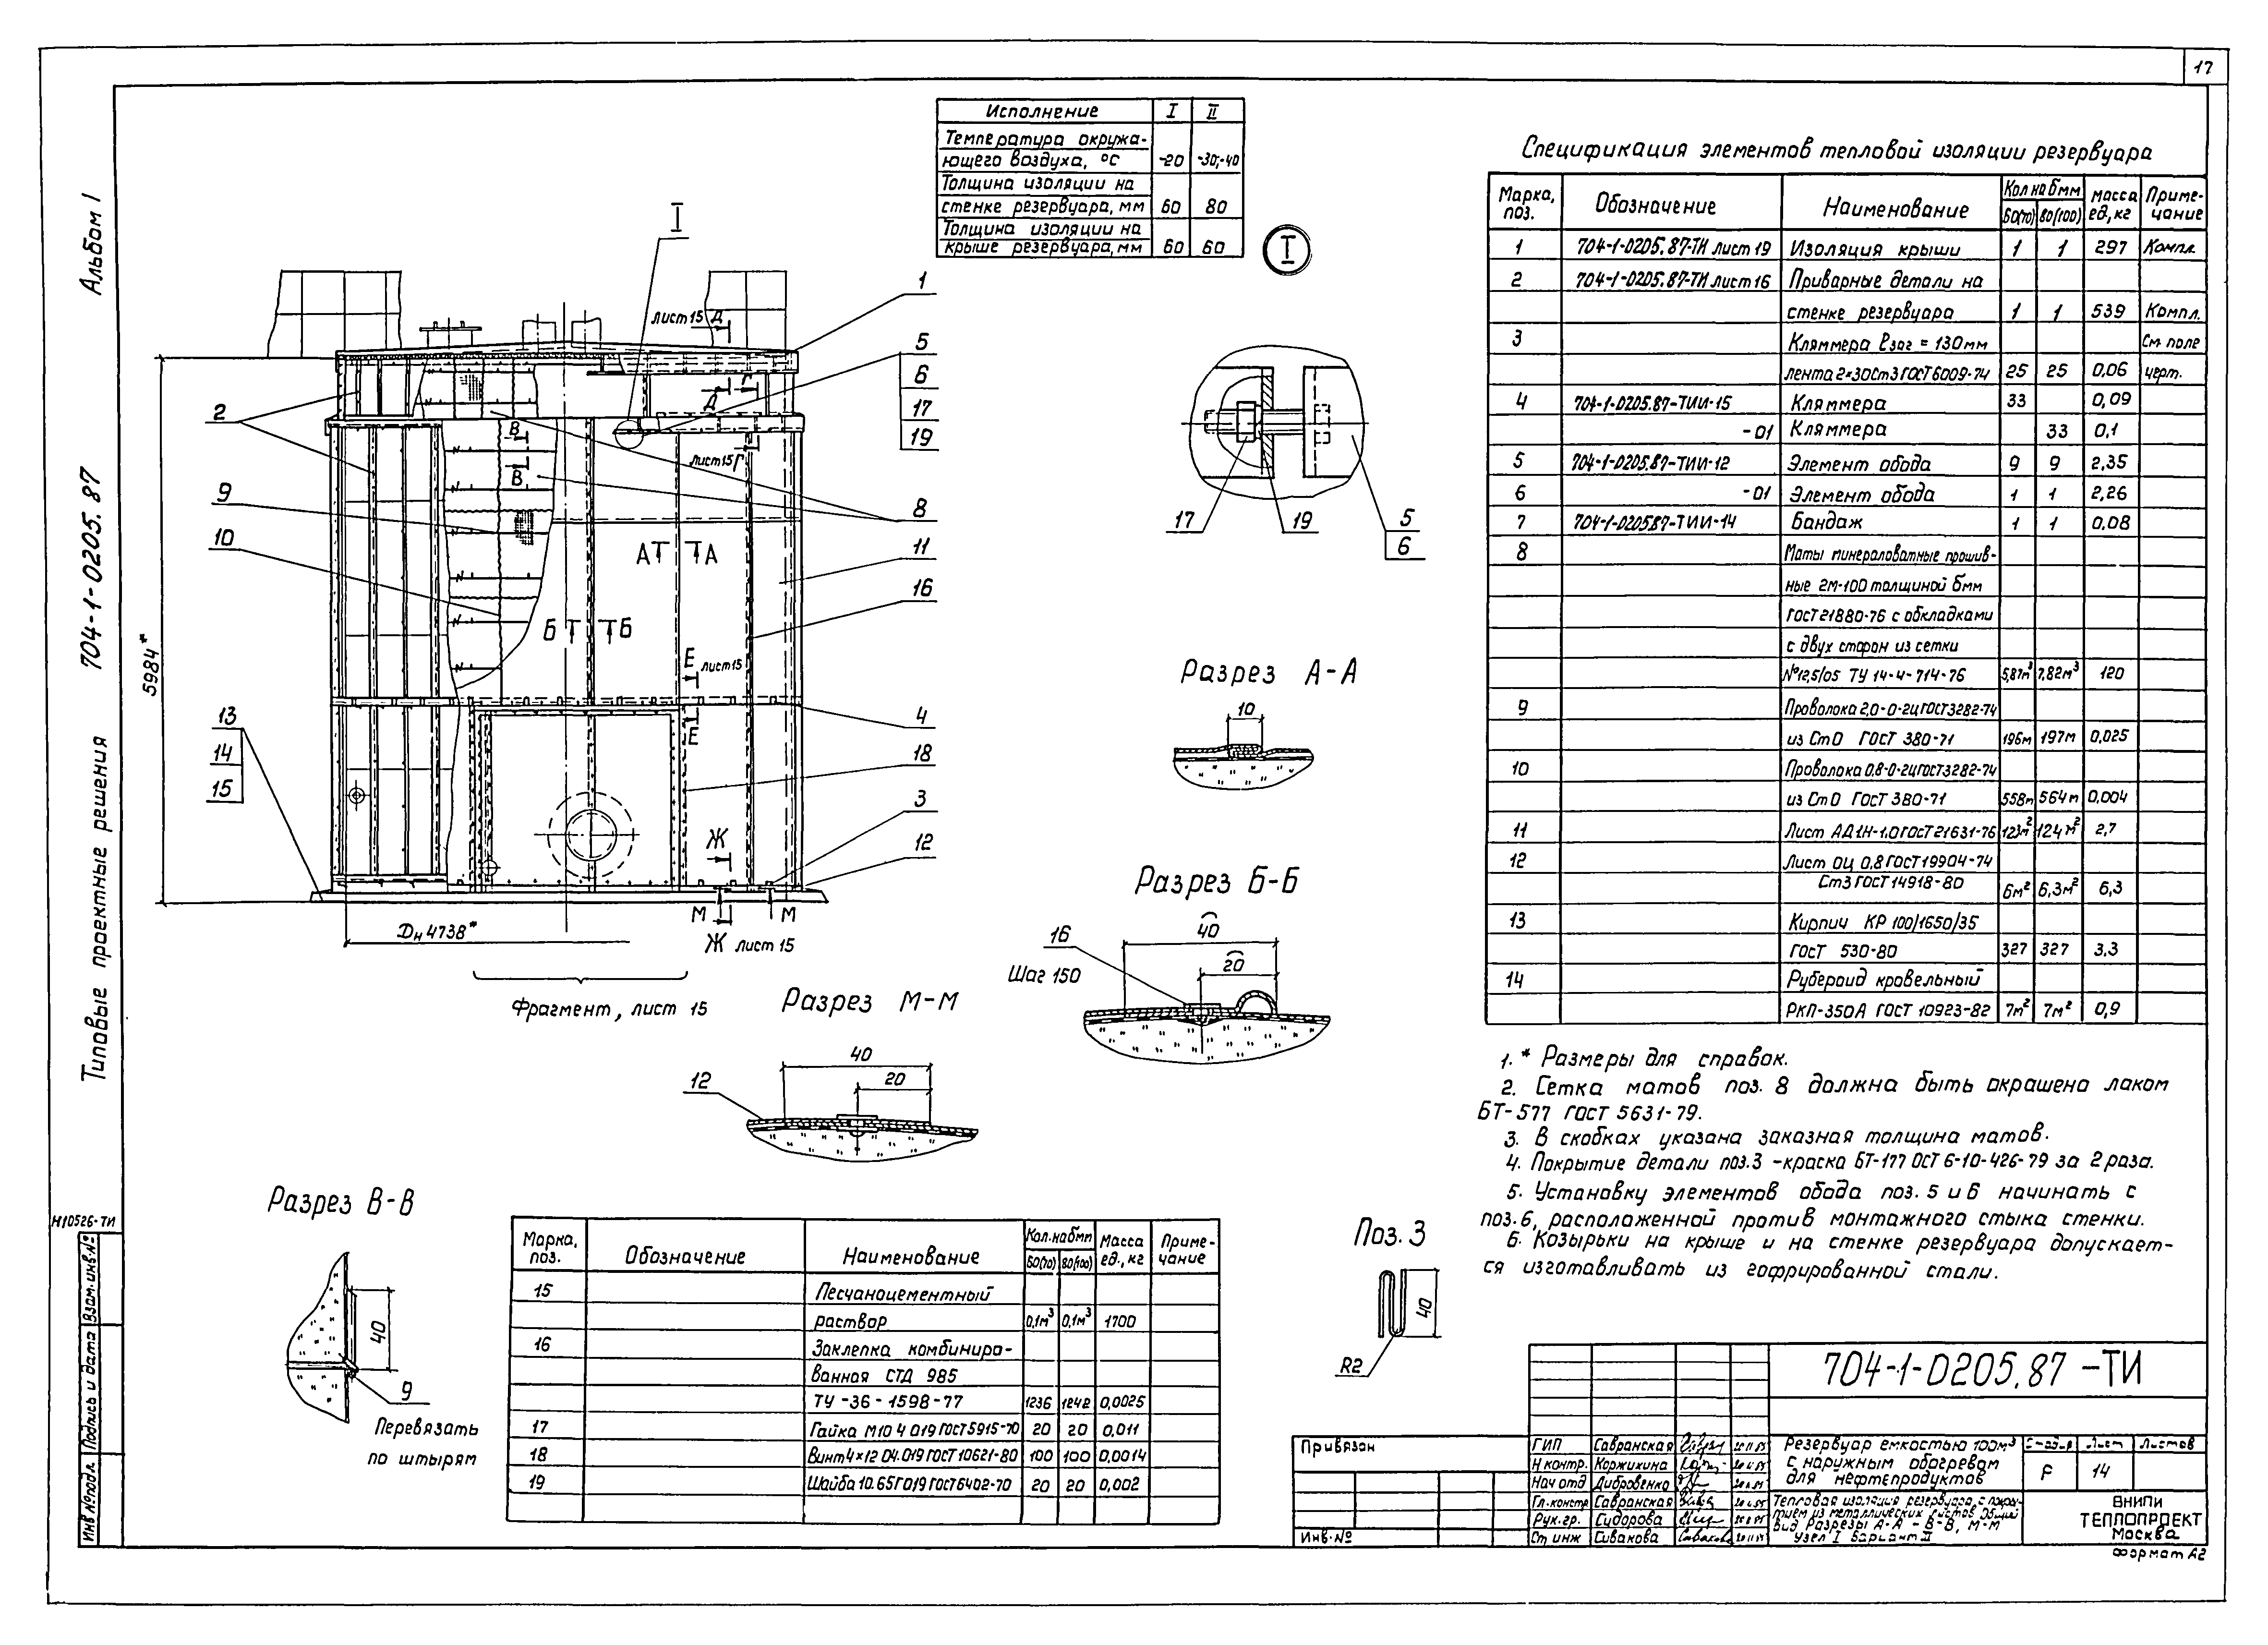 17
Альбом 1
704-1-0205.87
Типовые проектные решения
Н10526-ТИ
Взам.инв.№
Подпись и дата
Инв.№подл.
Исполнение I II
Температура окружа-
ющего воздуха, °С -20 -30;-40
Толщина изоляции на
стенке резервуара, мм 60 80
Толщина изоляции на
крыше резервуара, мм 60 60
I
лист 15 Д
Д
Г
лист 15 Г
В
В
А А
Б Б
Е лист 15
Е
Ж
М М
Ж лист 15
1
5
6
17
19
8
11
16
4
18
3
12
2
9
10
13
14
15
5984*
Dн 4738*
Фрагмент, лист 15
I
17
19
5
6
Разрез А-А
10
Разрез Б-Б
16
40
20
Шаг 150
Разрез М-М
12
40
20
Разрез В-В
40
9
Перевязать
по штырям
Поз. 3
40
R2
Спецификация элементов тепловой изоляции резервуара
Марка, поз. Обозначение Наименование Кол на бмм 60(70) 80(100) масса ед, кг Приме-чание
1 704-1-0205.87-ТИ лист 19 Изоляция крыши 1 1 297 Компл.
2 704-1-0205.87-ТИ лист 16 Приварные детали на
стенке резервуара 1 1 539 Компл.
3 Кляммера ℓзаг = 130мм См. поле
лента 2×30Ст3 ГОСТ6009-74 25 25 0,06 черт.
4 704-1-0205.87-ТИИ-15 Кляммера 33 0,09
-01 Кляммера 33 0,1
5 704-1-0205.87-ТИИ-12 Элемент обода 9 9 2,35
6 -01 Элемент обода 1 1 2,26
7 704-1-020587-ТИИ-14 Бандаж 1 1 0,08
8 Маты минераловатные прошив-
ные 2М-100 толщиной бмм
ГОСТ21880-76 с обкладками
с двух сторон из сетки
№12,5/05 ТУ 14-4-714-76 5,87м³ 7,82м³ 120
9 Проволока 2,0-0-2ЦГОСТ3282-74
из Ст0 ГОСТ 380-71 196м 197м 0,025
10 Проволока 0,8-0-2ЦГОСТ3282-74
из Ст0 ГОСТ 380-71 558м 564м 0,004
11 Лист АД1Н-1,0 ГОСТ21631-76 123м² 124м² 2,7
12 Лист ОЦ 0,8 ГОСТ19904-74
Ст3 ГОСТ14918-80 6м² 6,3м² 6,3
13 Кирпич КР 100/1650/35
ГОСТ 530-80 327 327 3,3
14 Рубероид кровельный
РКП-350А ГОСТ 10923-82 7м² 7м² 0,9
1. * Размеры для справок.
2. Сетка матов поз. 8 должна быть окрашена лаком
БТ-577 ГОСТ 5631-79.
3. В скобках указана заказная толщина матов.
4. Покрытие детали поз.3 -краска БТ-177 ОСТ 6-10-426-79 за 2 раза.
5. Установку элементов обода поз. 5 и 6 начинать с
поз.6, расположенной против монтажного стыка стенки.
6. Козырьки на крыше и на стенке резервуара допускает-
ся изготавливать из гофрированной стали.
Марка, поз. Обозначение Наименование Кол.на бмм 60(70) 80(100) Масса ед., кг Приме-чание
15 Песчаноцементный
раствор 0,1м³ 0,1м³ 1700
16 Заклепка комбиниро-
ванная СТД 985
ТУ -36-1598-77 1236 1242 0,0025
17 Гайка М10 4 019 ГОСТ5915-70 20 20 0,011
18 Винт 4×12 04.019 ГОСТ 10621-80 100 100 0,0014
19 Шайба 10.65Г019 ГОСТ6402-70 20 20 0,002
Привязан
Инв.№
704-1-0205.87 -ТИ
ГИП Савранская
Н контр. Коржихина
Нач отд Дибровенко
Гл.констр Савранская
Рук.гр. Сидорова
Ст инж Сивакова
Резервуар емкостью 100м³
с наружным обогревом
для нефтепродуктов
Стадия Лист Листов
Р 14
Тепловая изоляция резервуара, с покры-
тием из металлических листов Общий
вид Разрезы А-А - В-В, М-М
Узел I Вариант II
ВНИПИ
ТЕПЛОПРОЕКТ
Москва
Формат А2